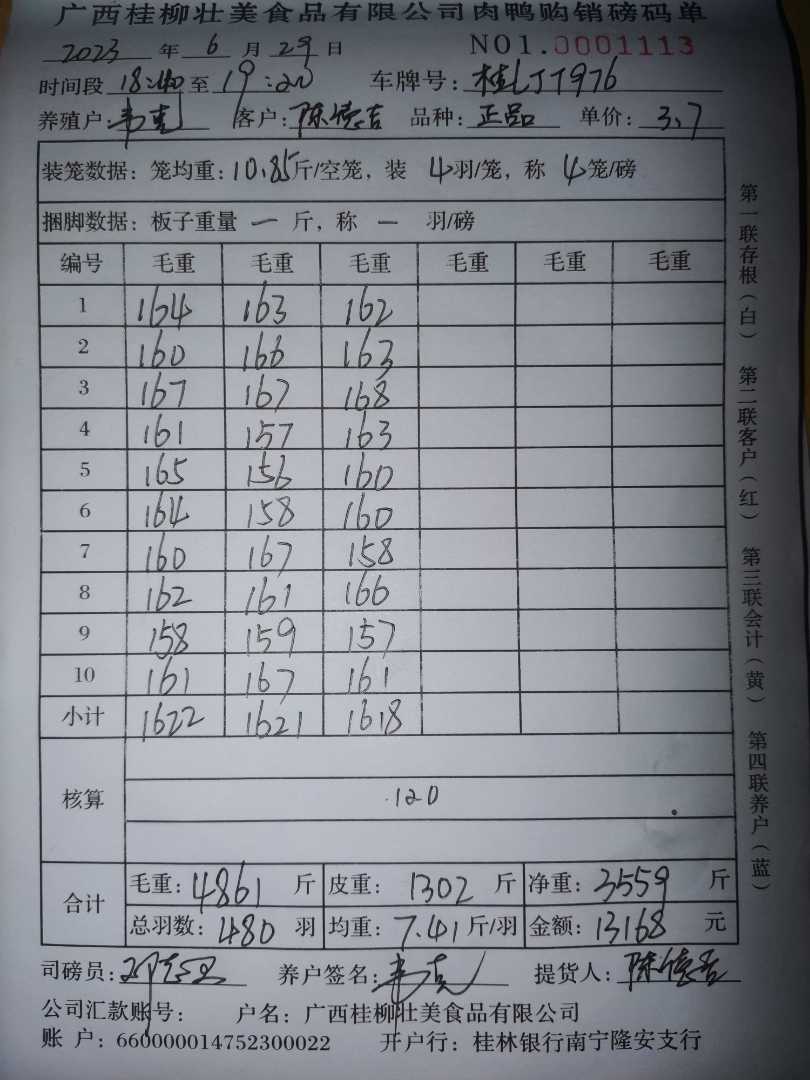 广西桂柳壮美食品有限公司肉鸭购销磅码单
2023 年 6 月 29 日 NO1.0001113
时间段 18:40 至 19:20 车牌号: 桂LJT976
养殖户: 韦克 客户: 陈德吉 品种: 正品 单价: 3.7
装笼数据: 笼均重: 10.85斤/空笼, 装 4羽/笼, 称 4笼/磅
捆脚数据: 板子重量 一 斤, 称 一 羽/磅
编号 毛重 毛重 毛重 毛重 毛重 毛重
1 164 163 162
2 160 166 163
3 167 167 168
4 161 157 163
5 165 156 160
6 164 158 160
7 160 167 158
8 162 161 166
9 158 159 157
10 161 167 161
小计 1622 1621 1618
核算 120
合计 毛重: 4861 斤 皮重: 1302 斤 净重: 3559 斤
总羽数: 480 羽 均重: 7.41斤/羽 金额: 13168 元
司磅员: 养户签名: 韦克 提货人: 陈德吉
公司汇款账号: 户名: 广西桂柳壮美食品有限公司
账 户: 660000014752300022 开户行: 桂林银行南宁隆安支行
第一联存根(白) 第二联客户(红) 第三联会计(黄) 第四联养户(蓝)